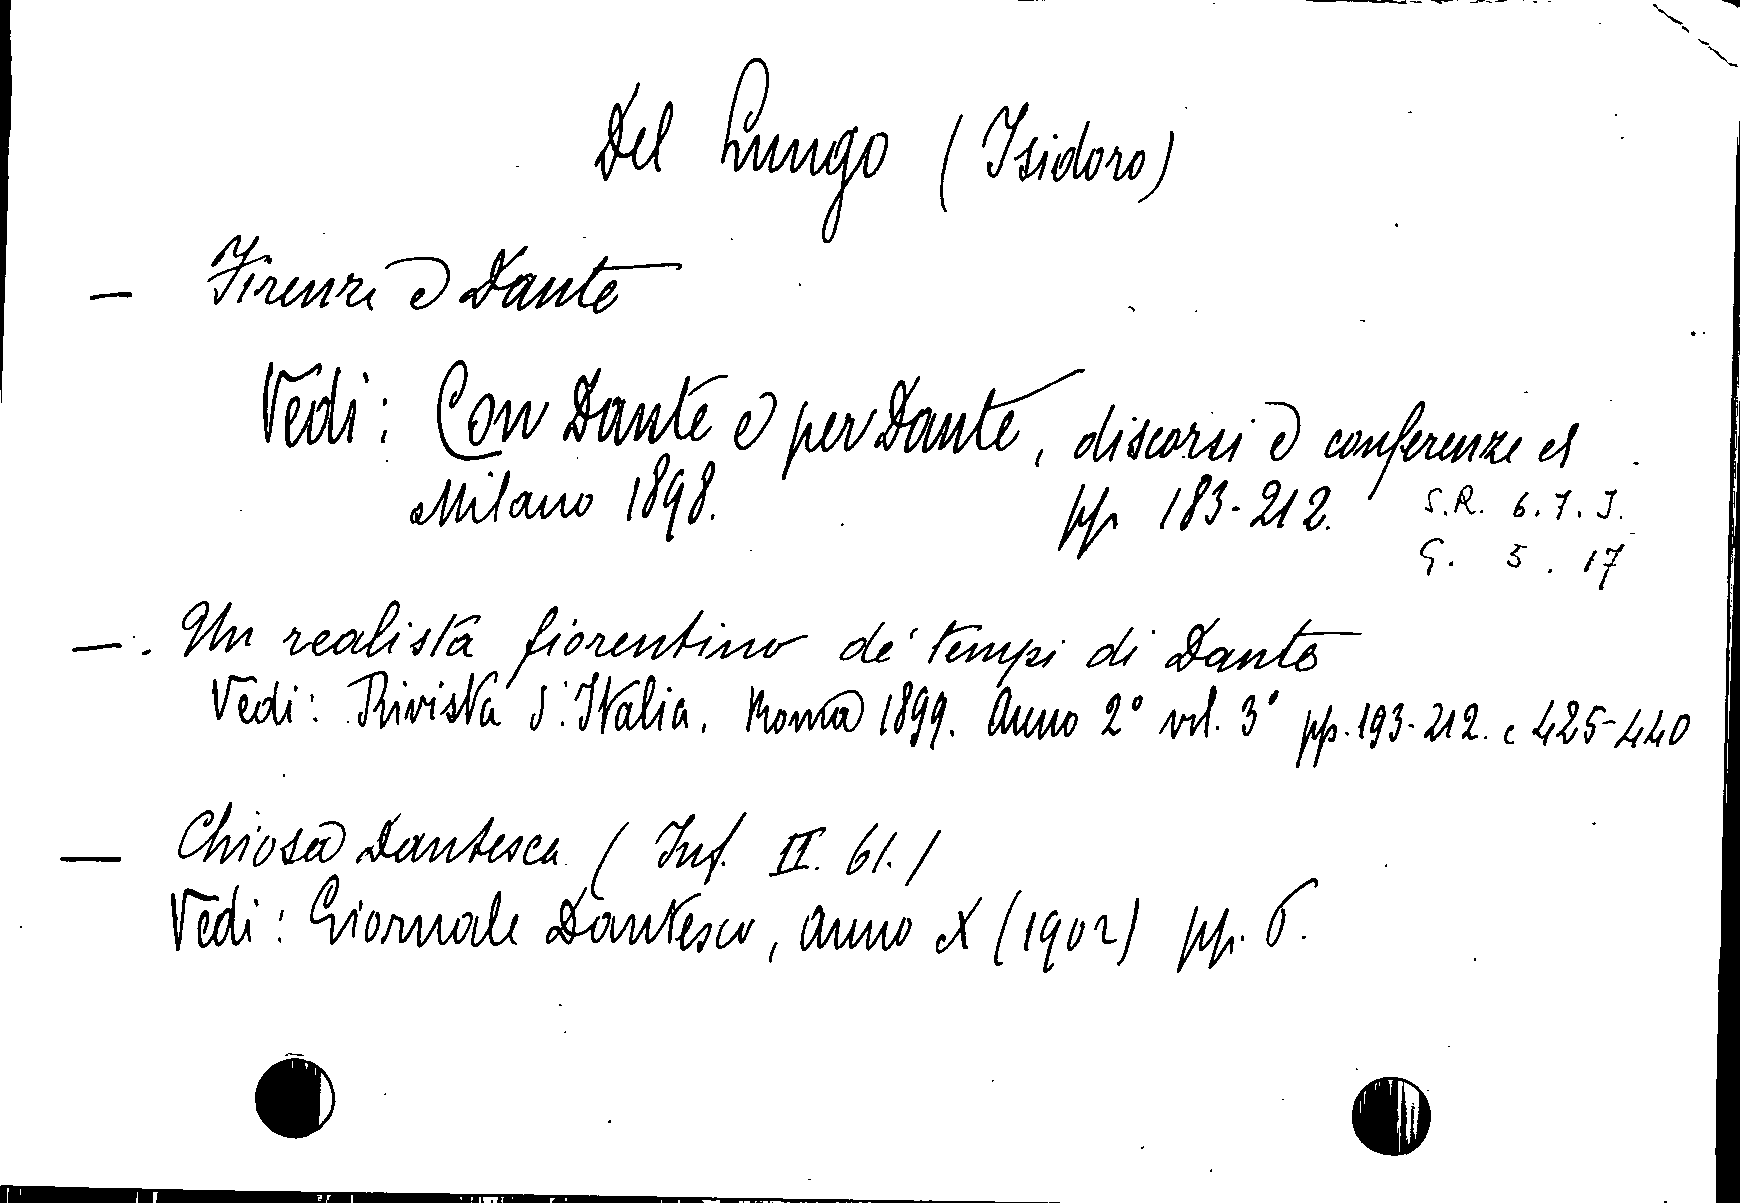 Del Lungo (Isidoro)
— Firenze e Dante
Vedi: Con Dante e per Dante, discorsi e conferenze
Milano 1898. pp. 183-212. S.R. 6.7.I.
G. 5. 17
—. Un realista fiorentino de' tempi di Dante
Vedi: Rivista d'Italia. Roma 1899. Anno 2° vol. 3° pp. 193-212. e 425-440
— Chiosa Dantesca (Inf. II. 61.)
Vedi: Giornale Dantesco, anno X (1902) pp. 6.